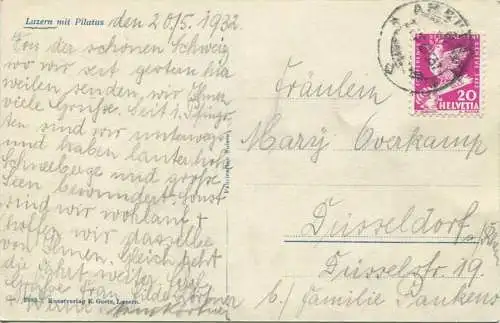 Luzern mit Pilatus den 20/5. 1932.
Von der schönen Schweiz
wo wir seit gestern hier
weilen senden, wir Ihnen
viele Grüsse. Seit 1. Pfings-
ten sind wir unterwegs
und haben lauter hohe
Schneeberge und große
Seen bewundert. Sonst
sind wir wohlauf +
hoffen wir dasselbe
von Ihnen. Gleich geht
die Fahrt weiter. Herzl.
Grüsse Frau Hilde Görtner
+ Werner
Fräulein
Mary Overkamp
Düsseldorf
Düsselstr. 19.
b./ Familie Pankeno
HELVETIA
20
Kunstverlag E. Goetz, Luzern.